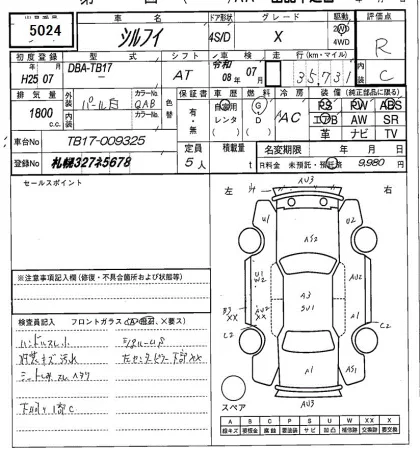 5024
車名
シルフィ
ドア形状
4S/D
グレード
X
駆動
2WD
4WD
評価点
R
初度登録
H25 07
型式
DBA-TB17
シフト
AT
車検
令和
08年07月
走行(km・マイル)
35,731
内装
C
排気量
1800
c.c.
外装
パール白
カラーNo.
QAB
内装
カラーNo.
色替
保証書
有・無
車歴
自家用
レンタ
( )
燃料
G
D
( )
冷房
AC
装備(純正部品に限る)
PS PW ABS
エアB AW SR
革 ナビ TV
車台No
TB17-009325
登録No
札幌327ネ5678
定員
5人
積載量
t
名変期限 年 月 日
R料金 未預託・預託済 9,980円
セールスポイント
左
右
※注意事項記入欄(修復・不具合箇所および状態等)
検査員記入 フロントガラス
ハンドルスレ小
内装キズ汚れ
下廻り1部C
左センターピラー下部XX
AU3
U1
U2
AS2
U1
W2
AU2
A3
SU1
AU2
XX
XX
A1
C2
C2
A1
AS1
AU3
スペア
A B C P S U W XX X
線キズ 要板金 腐蝕 要塗装 サビ 凹凸 補修跡 交換跡 要交換